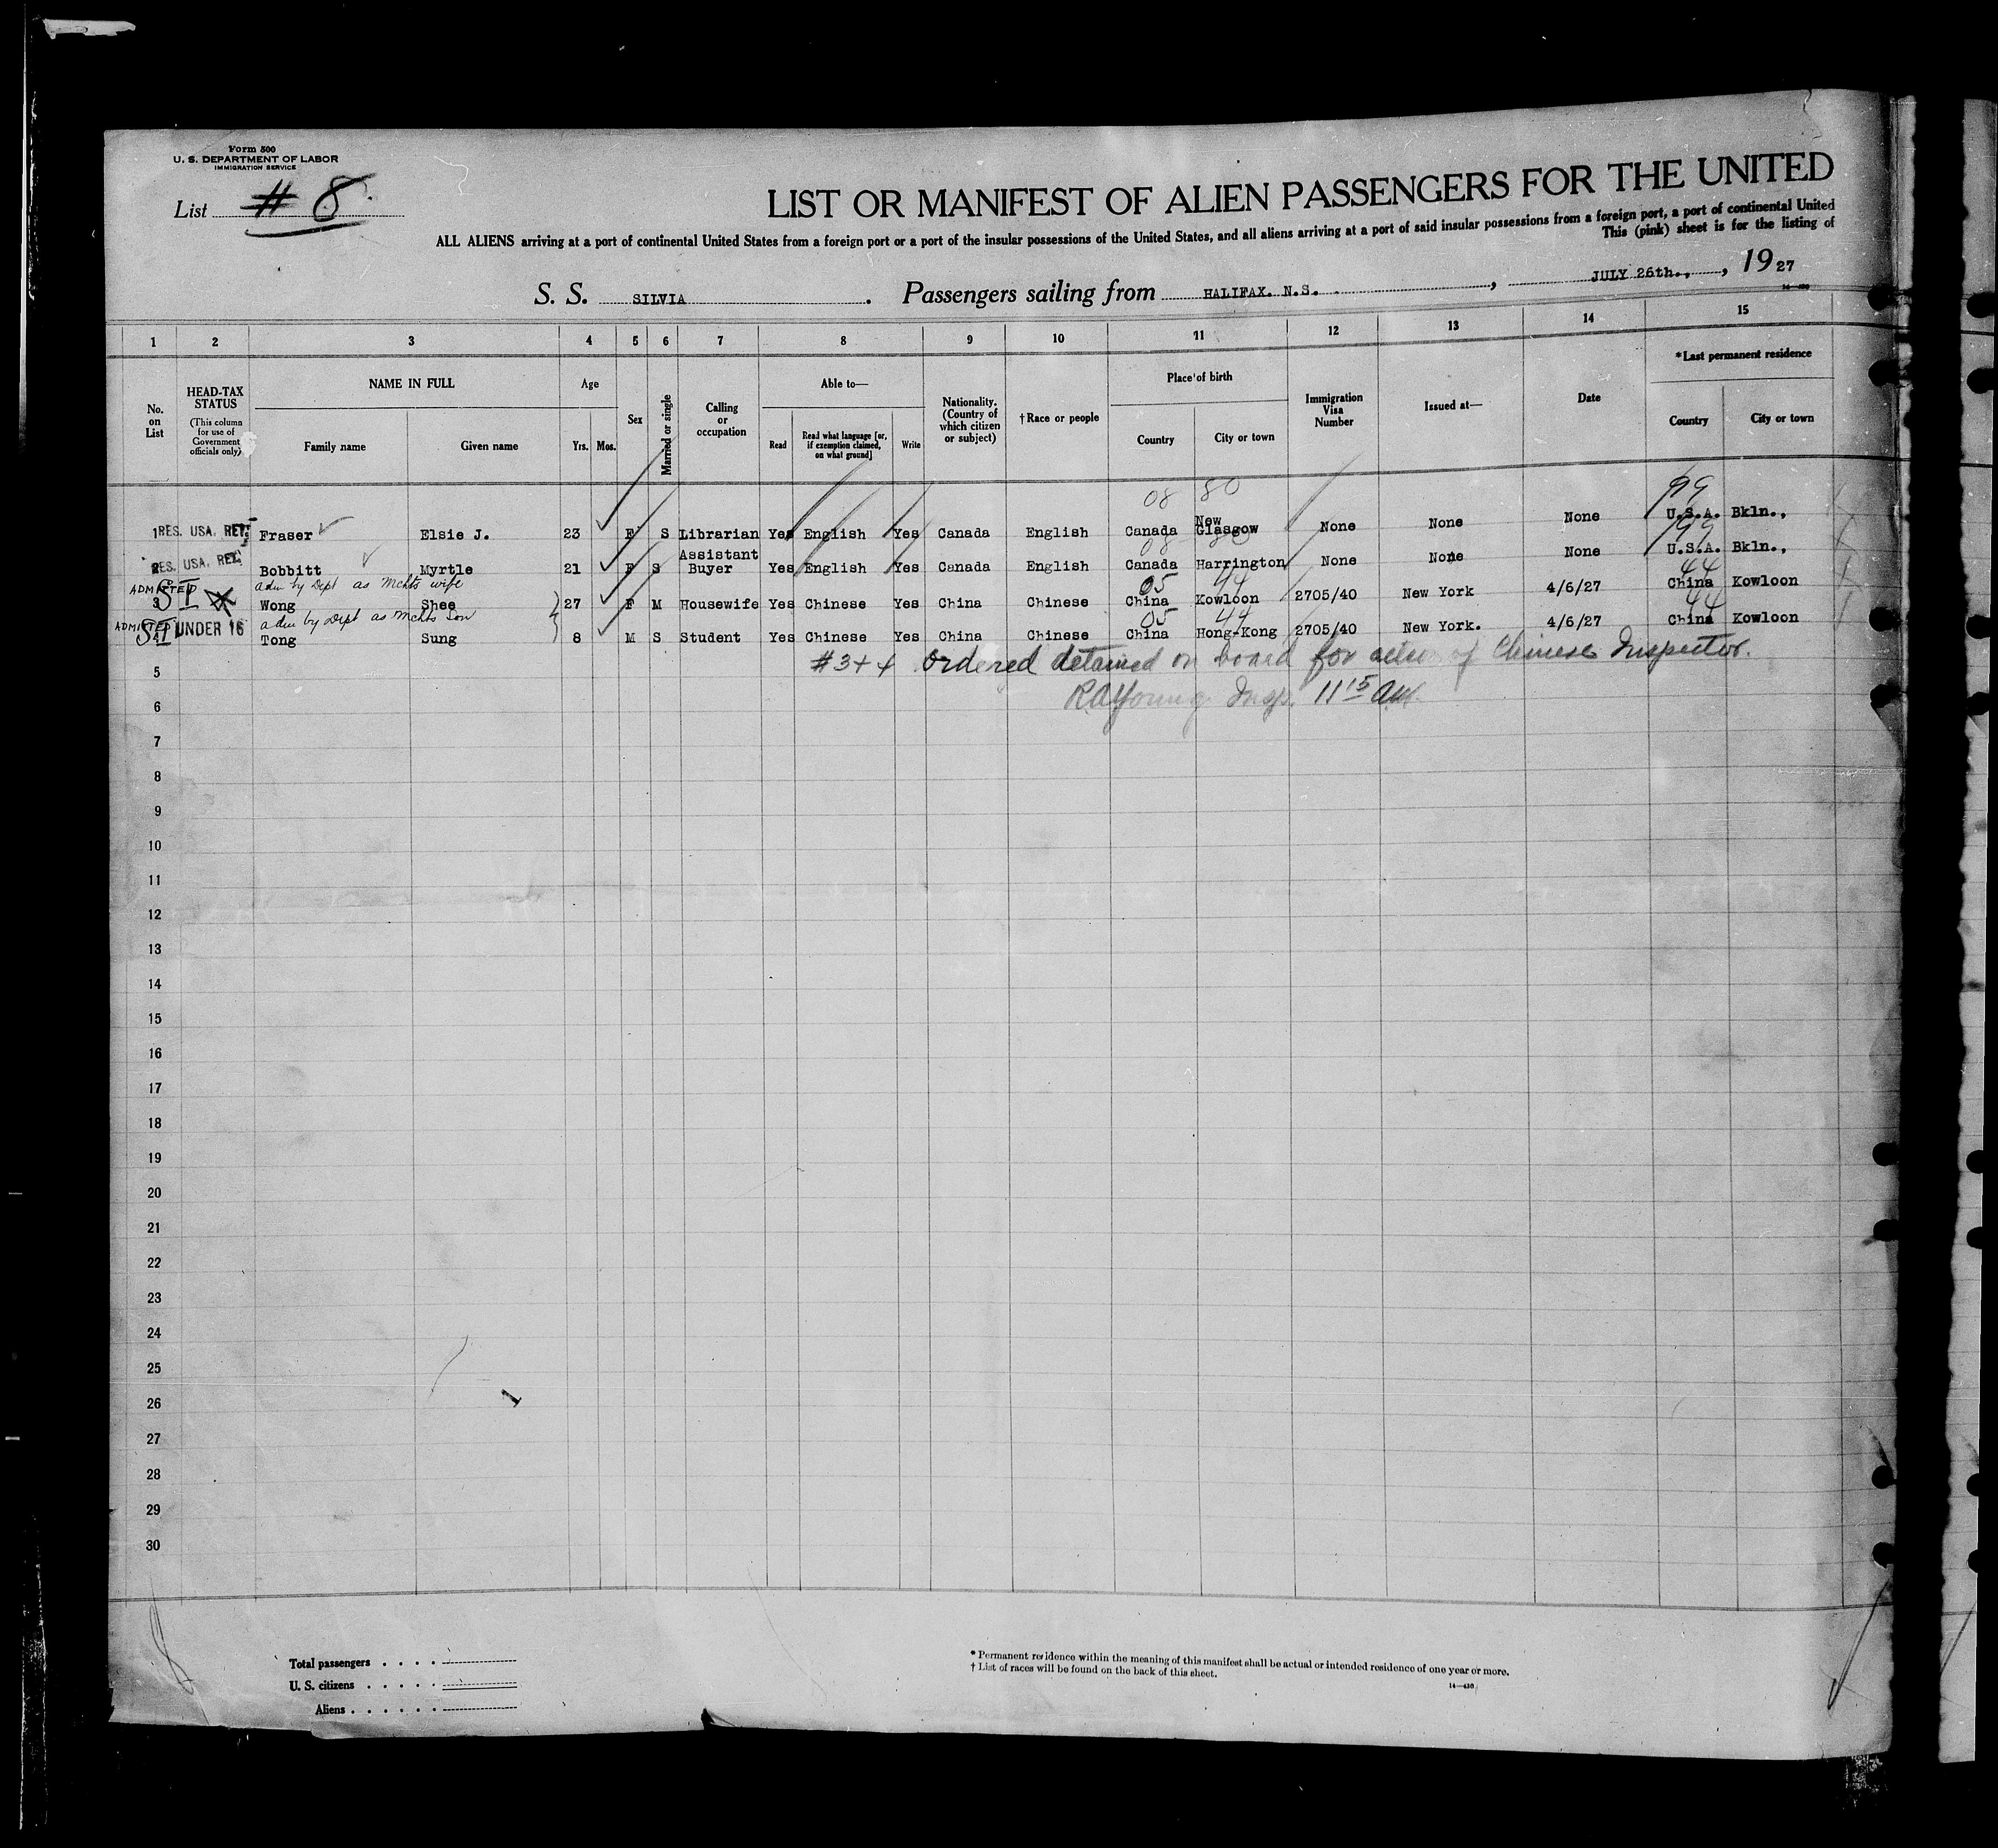 Form 500
U. S. DEPARTMENT OF LABOR
IMMIGRATION SERVICE
List # 8.
LIST OR MANIFEST OF ALIEN PASSENGERS FOR THE UNITED
ALL ALIENS arriving at a port of continental United States from a foreign port or a port of the insular possessions of the United States, and all aliens arriving at a port of said insular possessions from a foreign port, a port of continental United
This (pink) sheet is for the listing of
S. S. SILVIA. Passengers sailing from HALIFAX. N.S., JULY 26th., , 1927
1 2 3 4 5 6 7 8 9 10 11 12 13 14 15
No. on List
HEAD-TAX STATUS (This column for use of Government officials only)
NAME IN FULL Family name Given name
Age Yrs. Mos.
Sex
Married or single
Calling or occupation
Able to— Read Read what language [or, if exemption claimed, on what ground] Write
Nationality. (Country of which citizen or subject)
†Race or people
Place of birth Country City or town
Immigration Visa Number
Issued at—
Date
*Last permanent residence Country City or town
08 80 99
1 RES. USA. RET. Fraser Elsie J. 23 F S Librarian Yes English Yes Canada English Canada New Glasgow None None None U.S.A. Bkln.,
08 80 99
RES. USA. RET. Bobbitt Myrtle 21 F S Assistant Buyer Yes English Yes Canada English Canada Harrington None None None U.S.A. Bkln.,
adm by Dept as Mchts wife 05 44 44
ADMITTED 3 SI Wong Shee 27 F M Housewife Yes Chinese Yes China Chinese China Kowloon 2705/40 New York 4/6/27 China Kowloon
adm by Dept as Mchts Son 05 44 44
ADMITTED SI UNDER 16 Tong Sung 8 M S Student Yes Chinese Yes China Chinese China Hong-Kong 2705/40 New York. 4/6/27 China Kowloon
5 #3+4 Ordered detained on board for action of Chinese Inspector.
6 Insp. 11 15 AM.
7
8
9
10
11
12
13
14
15
16
17
18
19
20
21
22
23
24
25
26
27
28
29
30
Total passengers . . . .
U. S. citizens . . . . .
Aliens . . . . . .
* Permanent residence within the meaning of this manifest shall be actual or intended residence of one year or more.
† List of races will be found on the back of this sheet.
14—430